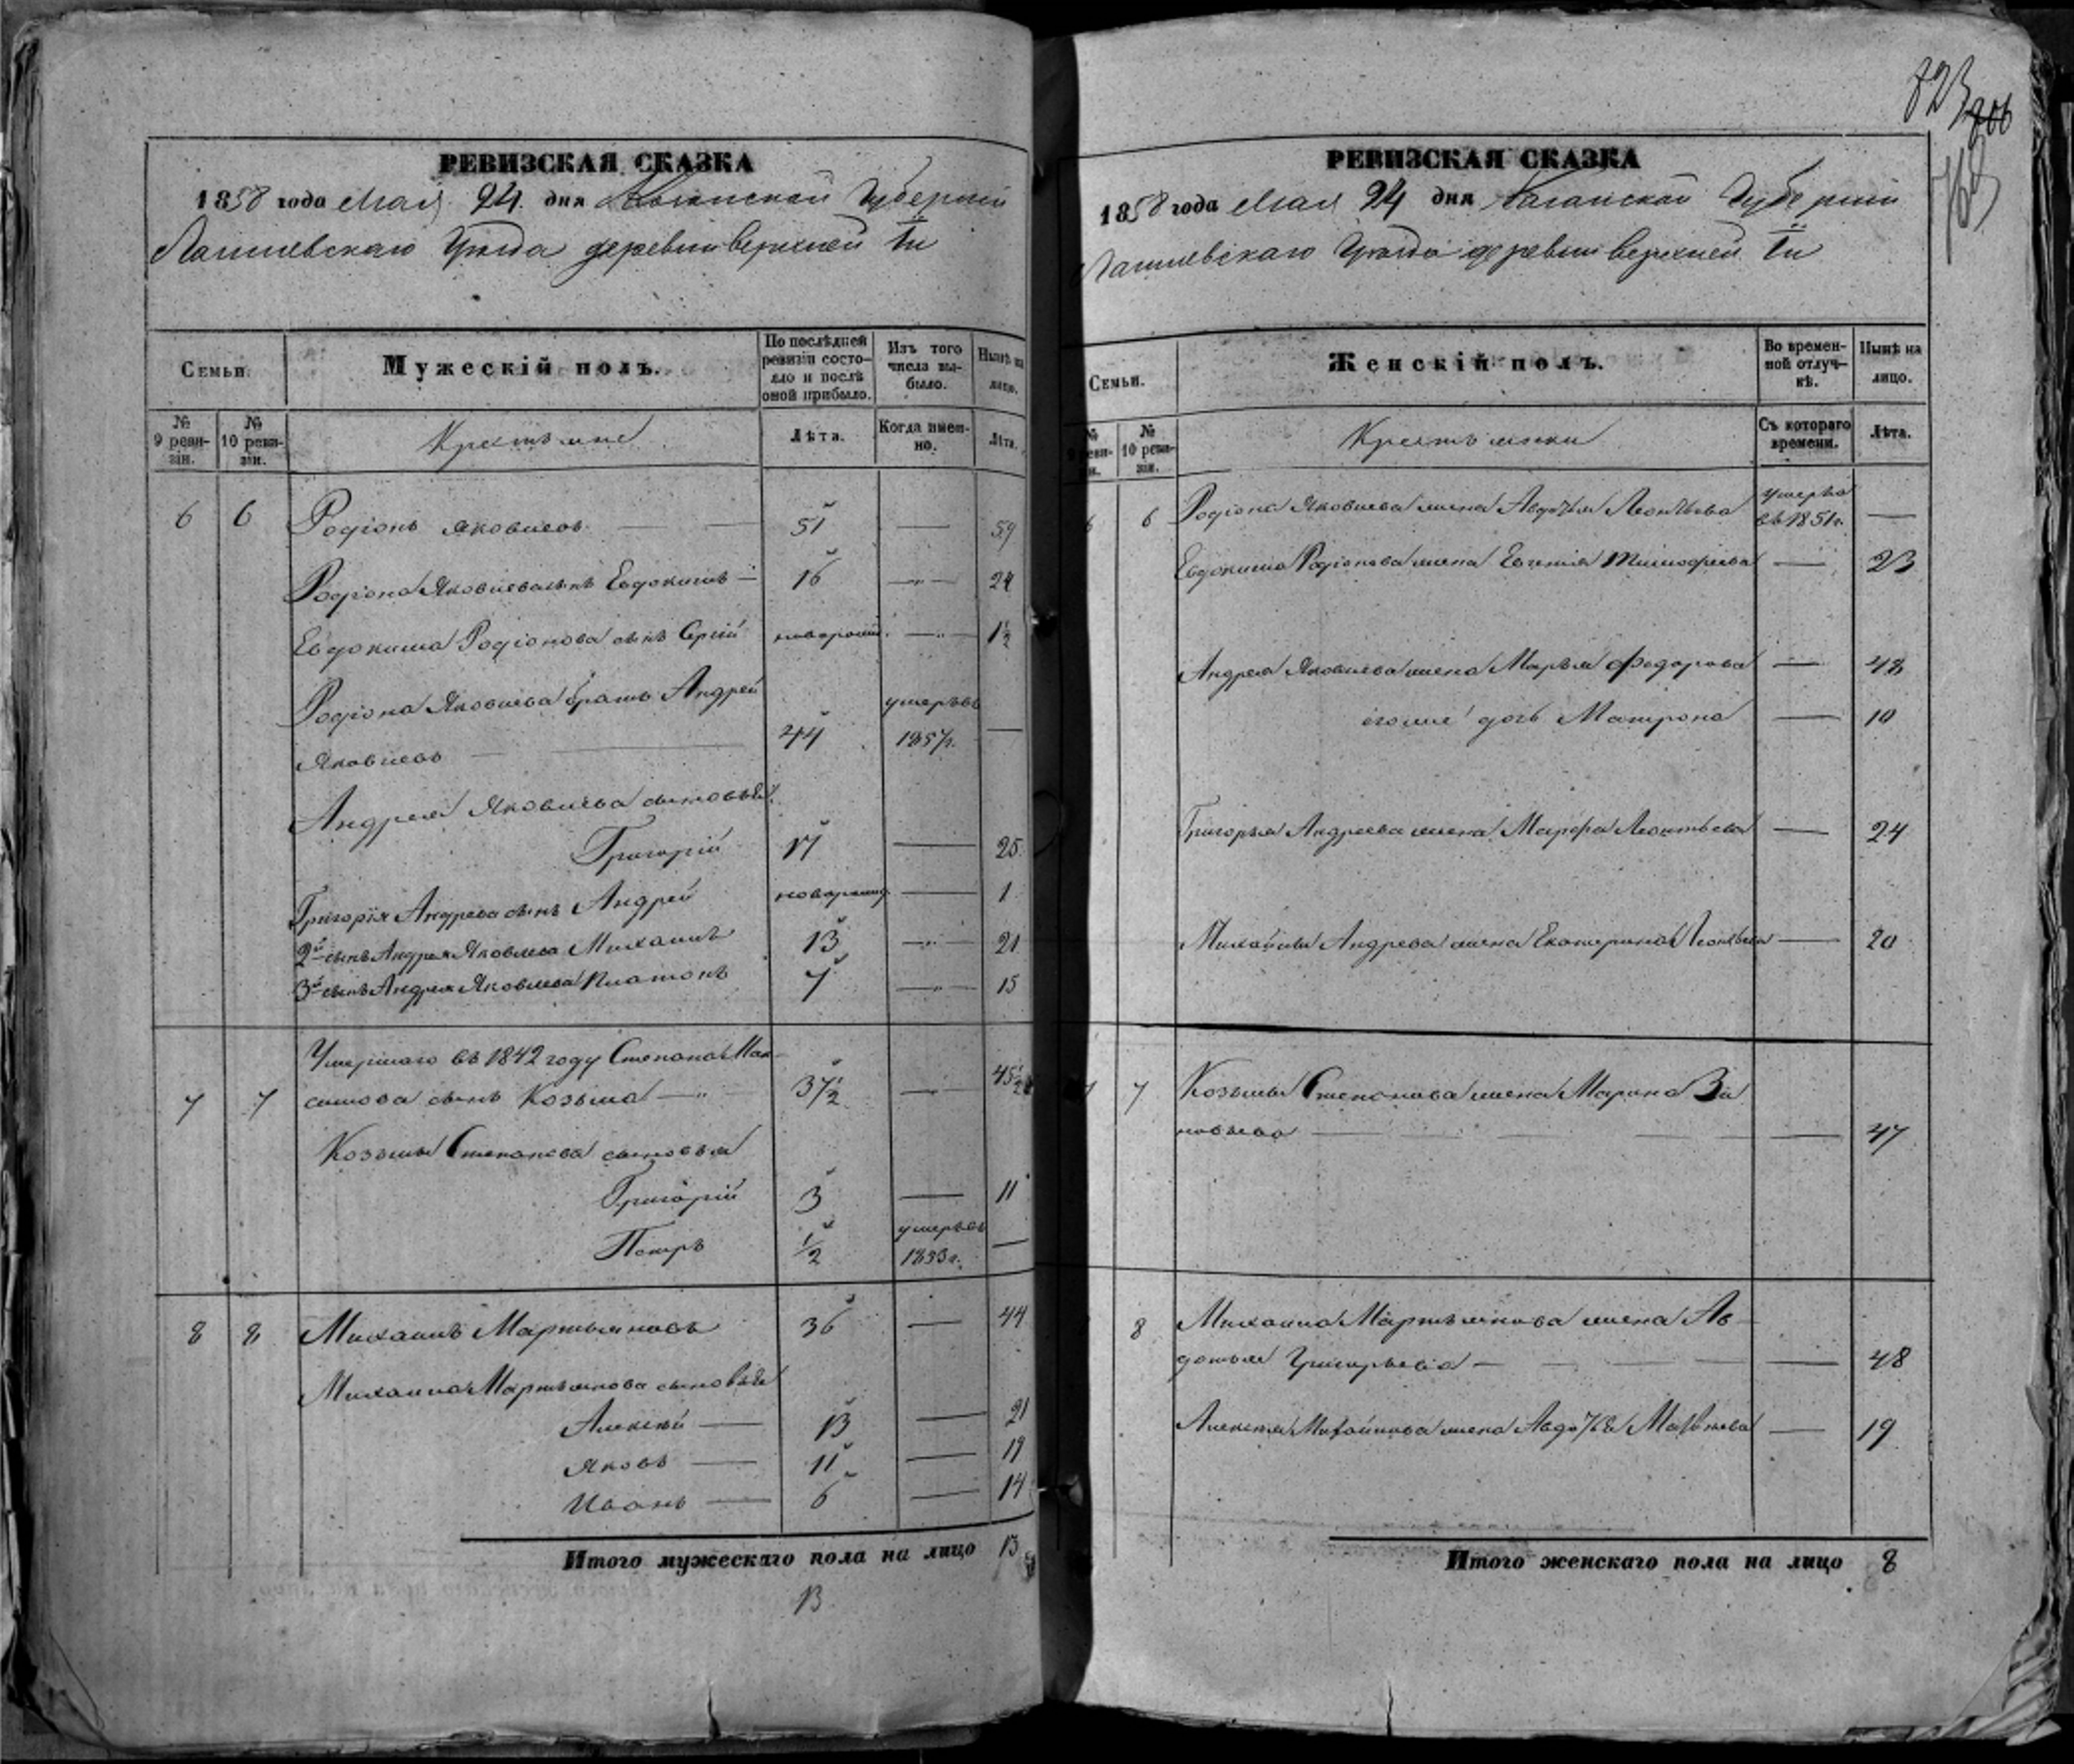 РЕВИЗСКАЯ СКАЗКА
1858 года Мая 24 дня Казанской Губернии
Лаишевскаго Уѣзда деревни Верхней Ти
Семьи.
Мужескій полъ.
По послѣдней ревизіи состояло и послѣ оной прибыло.
Изъ того числа выбыло.
Нынѣ на лицо.
№ 9 ревизіи.
№ 10 ревизіи.
Крестьяне
Лѣта.
Когда именно.
Лѣта.
6 6 Родіонъ Яковлевъ — 51 — 59
Родіона Яковлева сынъ Евдокимъ — 16 — 24
Евдокима Родіонова сынъ Сергій новорожд. — 1½
Родіона Яковлева братъ Андрей умеръ въ
Яковлевъ — 44 1857 г. —
Андрея Яковлева сыновья
Григорій 17 — 25
Григорія Андреева сынъ Андрей новорожд. — 1
2й сынъ Андрея Яковлева Михаилъ 13 — 21
3й сынъ Андрея Яковлева Платонъ 7 — 15
7 7 Умершаго въ 1842 году Степана Мак-
симова сынъ Козьма — 37½ — 45½
Козьмы Степанова сыновья
Григорій 3 — 11
Петръ ½ умеръ въ 1853 г. —
8 8 Михаилъ Мартьяновъ 36 — 44
Михаила Мартьянова сыновья
Алексѣй — 13 — 21
Яковъ — 11 — 19
Иванъ — 6 — 14
Итого мужескаго пола на лицо 13
13
823
РЕВИЗСКАЯ СКАЗКА
1858 года Мая 24 дня Казанской Губерніи
Лаишевскаго Уѣзда деревни Верхней Ти
Семьи.
Женскій полъ.
Во временной отлучкѣ.
Нынѣ на лицо.
№ 10 ревизіи.
Крестьянки
Съ котораго времени.
Лѣта.
6 6 Родіона Яковлева жена Авдотья Леонтьева умерла въ 1851 г. —
Евдокима Родіонова жена Евгенія Тимофеева — 23
Андрея Яковлева жена Марья Федорова — 48
его же дочь Матрона — 10
Григорья Андреева жена Марфа Леонтьева — 24
Михайлы Андреева жена Екатерина Леонтьева — 20
7 Козьмы Степанова жена Марина Зи
новьева — 47
8 Михаила Мартьянова жена Ав-
дотья Григорьева — 48
Алексѣя Михайлова жена Авдотья — 19
Итого женскаго пола на лицо 8